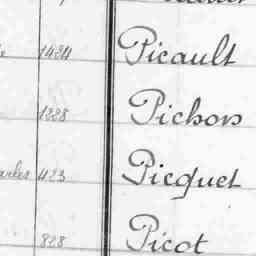 1424 Picault
1228 Pichon
423 Picquet
828 Picot